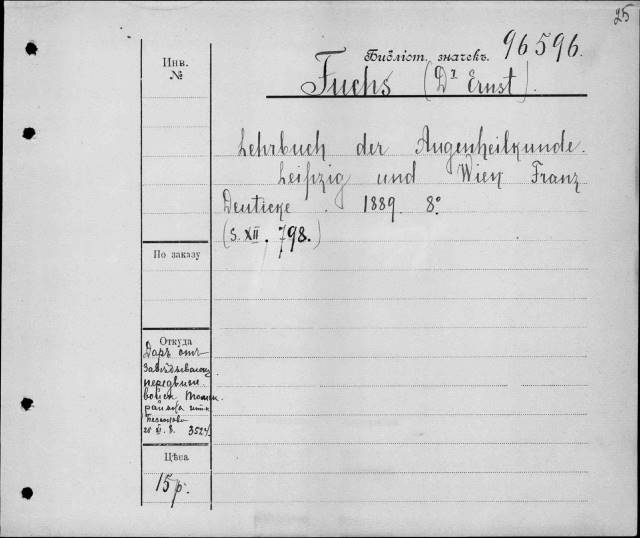 25
Библіот. значекъ. 96596.
Fuchs (Dr Ernst).
Инв.
№
Lehrbuch der Augenheilkunde.
Leipzig und Wien Franz
Deuticke. 1889. 8°
(S. XII, 798.)
По заказу
Откуда
Даръ отъ
Завѣдывающ
передвиж.
войск Томск.
района
3524
Цѣна
15 р.